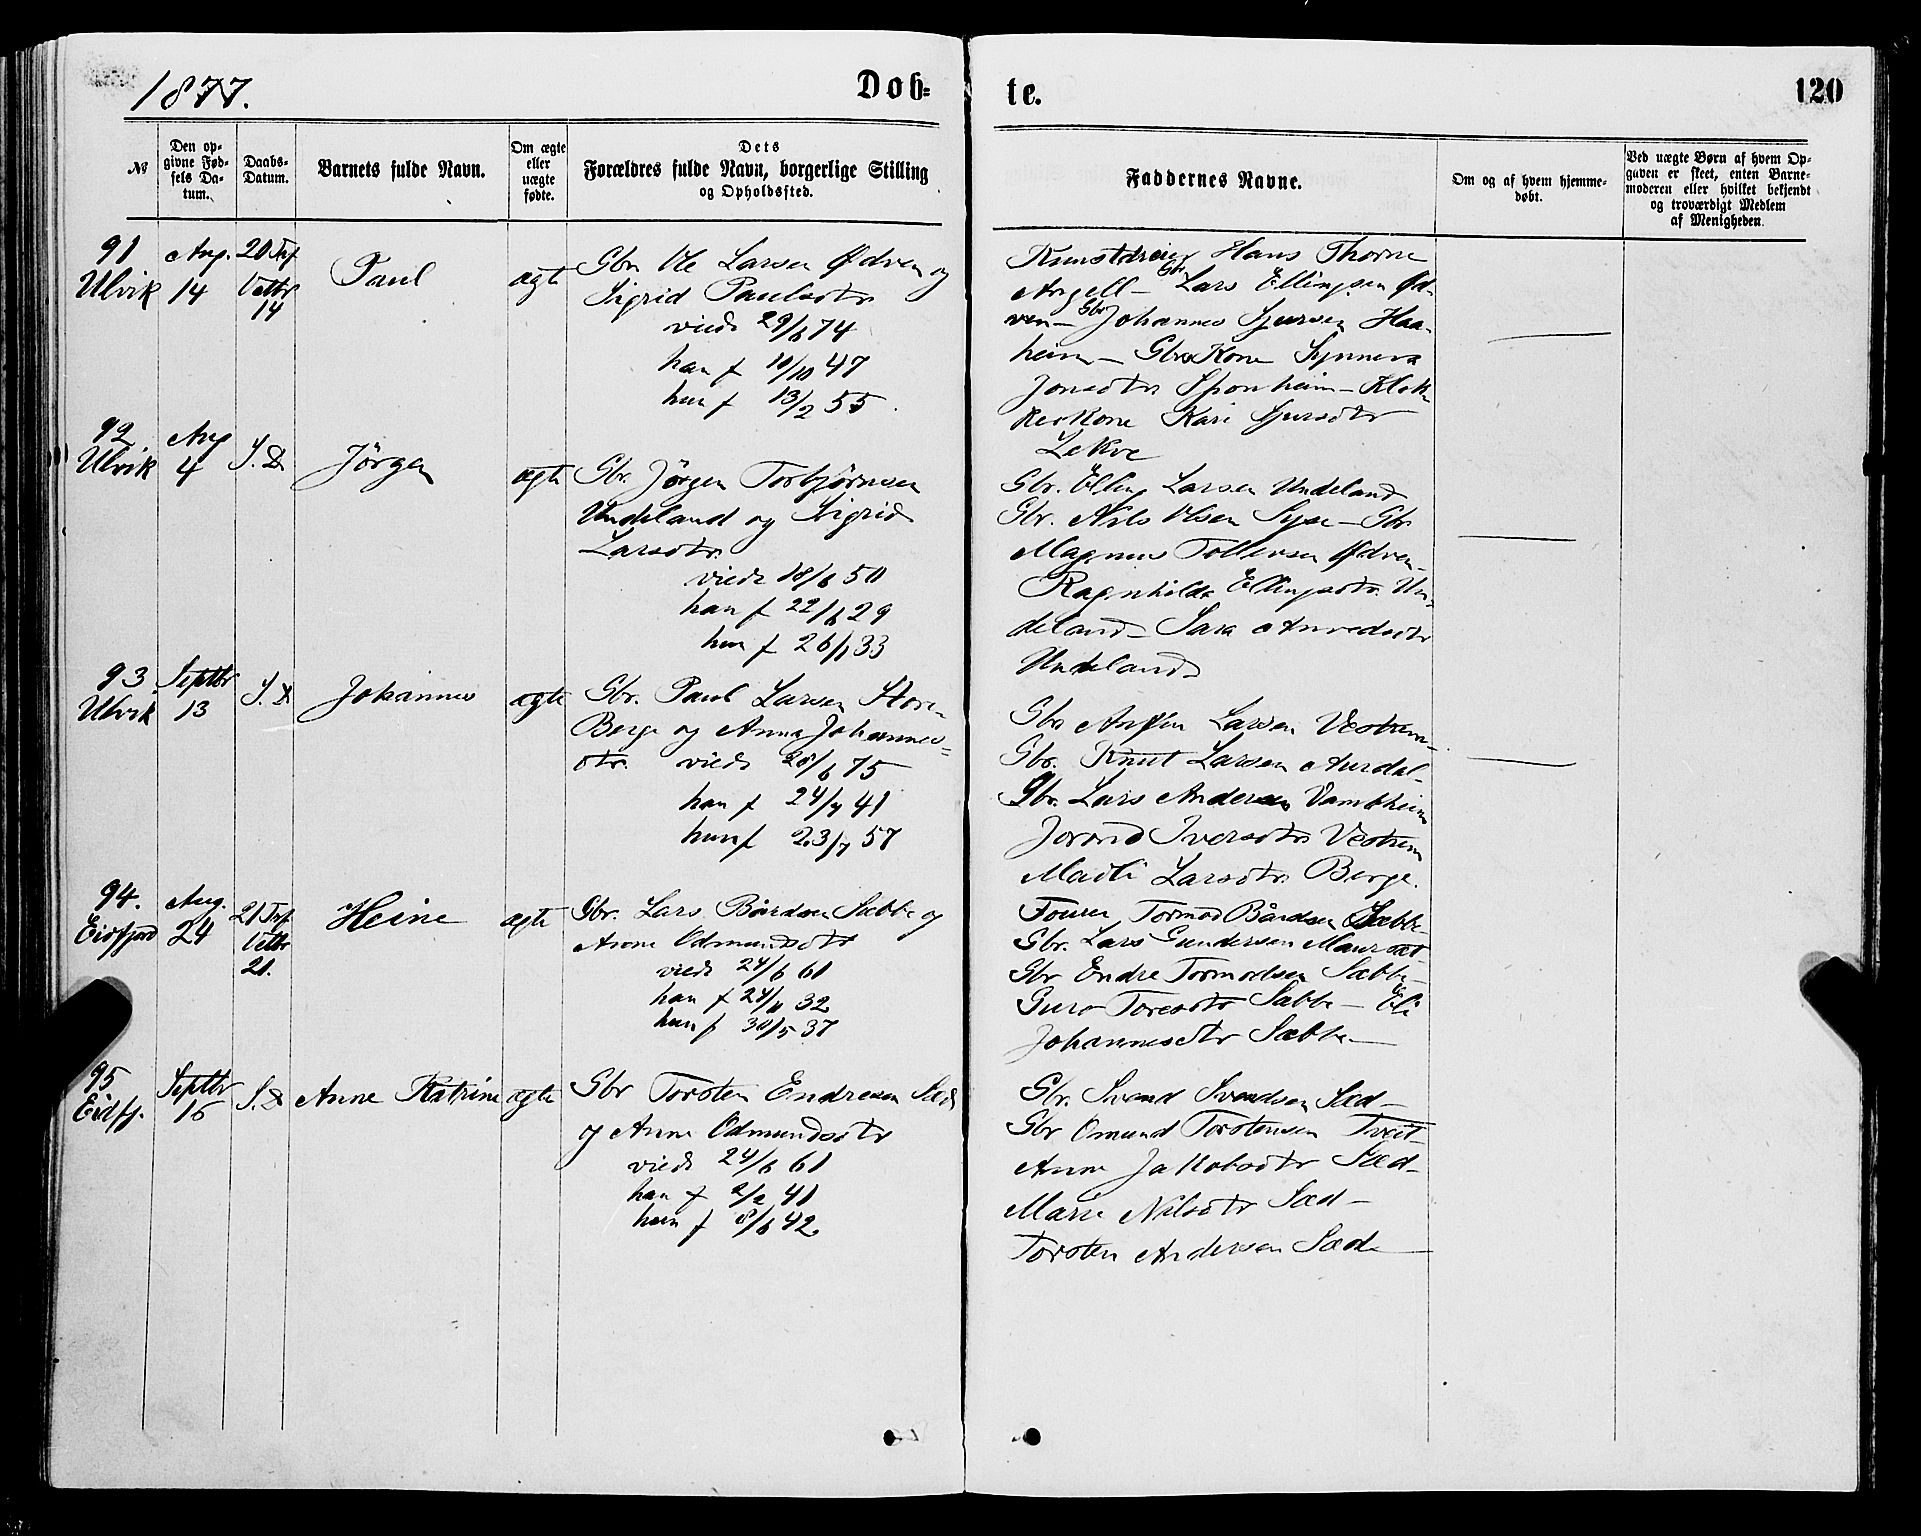 1877.
Dob=
te.
120
№
Den op-
givne Fød-
sels Da-
tum.
Daabs-
Datum.
Barnets fulde Navn.
Om ægte
eller
uægte
fødte.
Dets
Forældres fulde Navn, borgerlige Stilling
og Opholdssted.
Faddernes Navne.
Om og af hvem hjemme-
døbt.
Ved uægte Børn af hvem Op-
gaven er skeet, enten Barne-
moderen eller hvilket bekjendt
og troværdigt Medlem
af Menigheden.
91
Ulvik
Aug.
14
14
Paul
ægte
Gbr. Ole Larsen Ødven og
Sigrid Paulsdtr.
viede 29/6 74
han f 10/10 47
hun f 13/2 55.
Hans Thorne
Angell - Gbr. Lars Ellingsen Ød-
ven - Gbr Johannes Sjursen Haa-
heim - Gbr.Kone Synneva
Jonsdtr Sponheim - Klok-
kerkone Kari Sjursdtr
Lekve
92
Ulvik
Aug
4
S. D.
Jörgen
ægte
Gbr. Jørgen Torbjørnsen
Undeland og Sigrid
Larsdtr.
viede 18/6 50
han f 22/6 29
hun f 26/1 33
Gbr. Elling Larsen Undeland
Gbr. Nils Olsen Syse - Gbr.
Magnus Tollevsen Ødven -
Ragnhilda Ellingsdtr. Un-
deland - Sara
Undeland
93
Ulvik
Septbr
13
S. D
Johannes
ægte
Gbr. Paul Larsen Store-
Berge og Anna Johannes=
dtr. viede 28/6 75
han f 24/7 41
hun f 23/7 57
Gbr Larsen Vestrem -
Gbr. Knut Larsen Aurdal -
Gbr. Lars Andersen Vambheim
Jorand Iversdtr Vestrem
Madli Larsdtr. Berge.
94.
Eidfjord
Aug.
24
21.
Heine
ægte
Gbr. Lars Bårdsen Sæbbe og
Anne Odmundsdtr
viede 24/6 61
han f 24/11 32
hun f 30/5 37
Tormod Bårdsen Sæbbe -
Gbr. Lars Gundersen Maursæt
Gbr Endre Tormodsen Sæbbe -
Guro Toresdtr Sæbbe - Eli
Johannesdtr Sæbbe -
95
Eidfj.
Septbr
16
S. D
Anne Katrine
ægte
Gbr Torsten Endresen Sæd
og Anne Odmundsdtr
viede 24/6 61
han f 2/2 41
hun f 8/6 42.
Gbr. Svend Svendsen Sæd -
Gbr Omund Torstensen Tveit -
Anna Jakobsdtr Sæd -
Mari Nilsdtr Sæd -
Torsten Andersen Sæd -